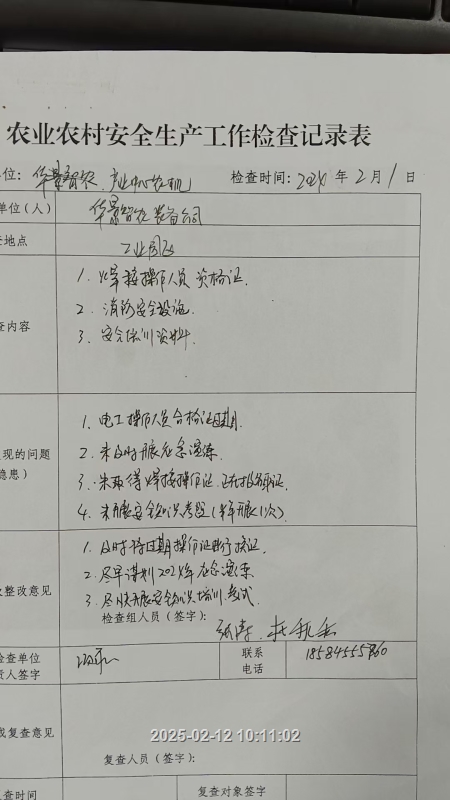 农业农村安全生产工作检查记录表
位: 华景智农、产业中心农机 检查时间: 2024 年 2 月 1 日
单位(人) 华景智农装备公司
地点 工业园区
查内容 1. 焊接操作人员资格证.
2. 消防安全设施.
3. 安全培训资料.
现的问题
隐患) 1. 电工操作人员合格证过期.
2. 未及时开展应急演练.
3. 未取得焊接操作证, 正在报名取证.
4. 未开展安全知识考题(半年开展1次).
整改意见 1. 及时将过期操作证进行换证.
2. 尽早谋划2024年应急演练
3. 尽快开展安全知识培训、考试.
检查组人员(签字):
检查单位
责人签字 联系
电话
或复查意见
复查人员(签字):
查时间 复查对象签字
2025-02-12 10:11:02